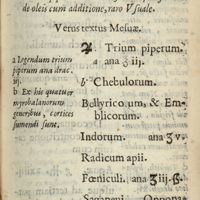 de oleis cum additione, raro Vsuale.
Verus textus Mesuæ.
♃. Trium piperum.
a ana ʒ iij.
a Legendum trium
piperum ana drac.
iij.
b Chebulorum.
b Ex his quatuor
myrobalanorum
generibus, cortices
sumendi sunt.
Bellyricorum, & Em-
blicorum.
Indorum. ana ʒ v.
Radicum apii.
Fœniculi. ana ʒ iij. ß.
Sagapeni Oppona